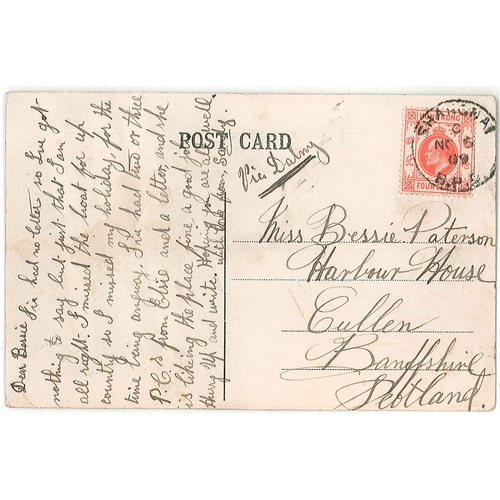 POST CARD
Via Dalny
HONG KONG
FOUR
SHANGHAI
B.P.O.
Dear Bessie I've had no letter so I've got
nothing to say but just that I am
all right. I missed the boat for up
country so I missed my holiday for the
time being anyway. I've had two or three
P.C.s from Elsie and a letter, and she
is likeing the place fine a good job.
Hurry up and write. Hoping you are all well
with love from Sandy.
Miss Bessie Paterson
Harbour House
Cullen
Banffshire
Scotland.